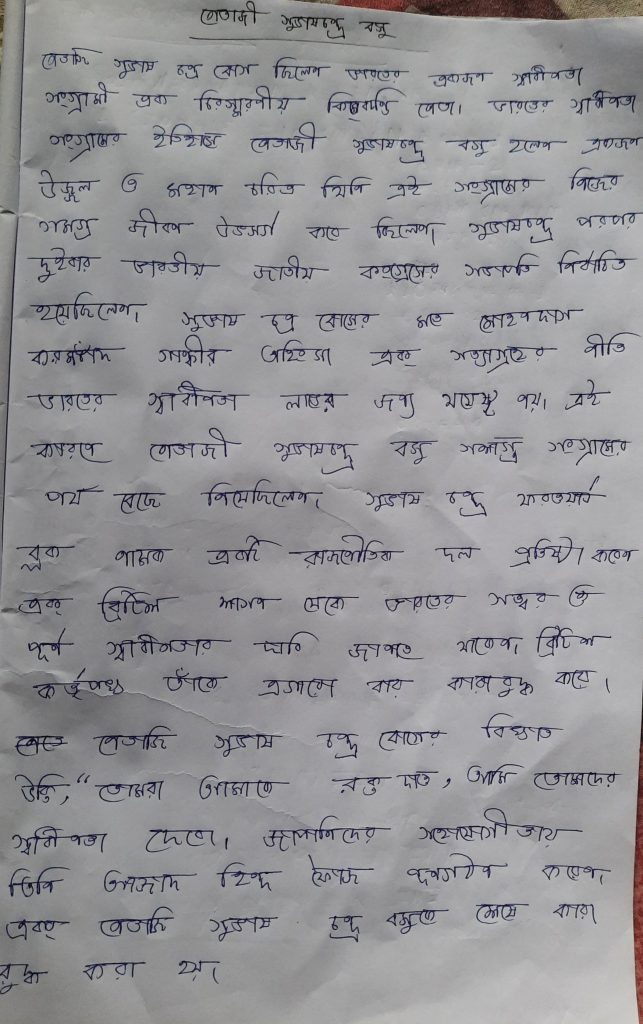 নেতাজী সুভাষচন্দ্র বসু
নেতাজি সুভাষ চন্দ্র বোস ছিলেন ভারতের একজন স্বাধীনতা
সংগ্রামী এবং চিরস্মরণীয় কিংবদন্তি নেতা। ভারতের স্বাধীনতা
সংগ্রামের ইতিহাসে নেতাজী সুভাষচন্দ্র বসু হলেন একজন
উজ্জ্বল ও মহান চরিত্র যিনি এই সংগ্রামের নিজের
সমগ্র জীবন উৎসর্গ করে ছিলেন। সুভাষচন্দ্র পরপর
দুইবার ভারতীয় জাতীয় কংগ্রেসের সভাপতি নির্বাচিত
হয়েছিলেন। সুভাষ চন্দ্র বোসের মতে মোহনদাস
করমচাঁদ গান্ধীর অহিংসা এবং সত্যাগ্রহের নীতি
ভারতের স্বাধীনতা লাভের জন্য যথেষ্ট নয়। এই
কারণে নেতাজী সুভাষচন্দ্র বসু সশস্ত্র সংগ্রামের
পথ বেছে নিয়েছিলেন। সুভাষ চন্দ্র ফরওয়ার্ড
ব্লক নামক একটি রাজনৈতিক দল প্রতিষ্ঠা করেন
এবং ব্রিটিশ শাসন থেকে ভারতের সত্বর ও
পূর্ণ স্বাধীনতার দাবি জানাতে থাকেন। ব্রিটিশ
কর্তৃপক্ষ তাঁকে এগারো বার কারা রুদ্ধ করে।
নেতাজি সুভাষ চন্দ্র বোসের বিখ্যাত
উক্তি, "তোমরা আমাকে রক্ত দাও, আমি তোমাদের
স্বাধীনতা দেবো। জাপানিদের সহযোগীতায়
তিনি আজাদ হিন্দ ফৌজ পুনর্গঠন করেন।
এবং নেতাজি সুভাষ চন্দ্র বসুকে শেষে কারা
রুদ্ধ করা হয়।